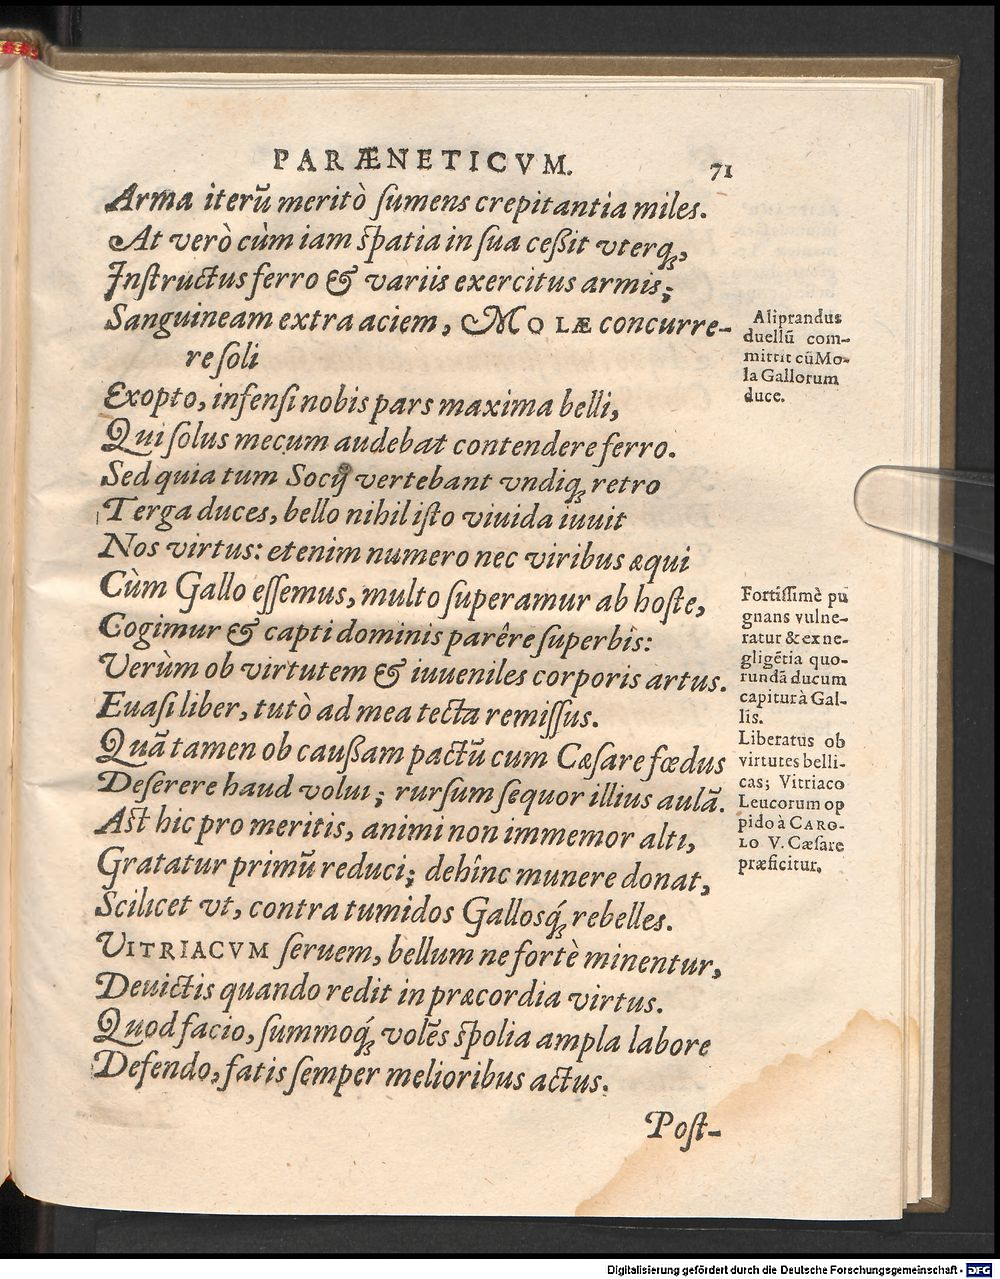 PARÆNETICVM. 71
Arma iterũ meritò ſumens crepitantia miles.
At verò cùm iam ſpatia in ſua ceßit vterq́;,
Inſtructus ferro & variis exercitus armis;
Sanguineam extra aciem, MOLÆ concurre-
re ſoli
Exopto, infenſi nobis pars maxima belli,
Qui ſolus mecum audebat contendere ferro.
Sed quia tum Socij vertebant vndiq; retro
Terga duces, bello nihil iſto viuida iuuit
Nos virtus: etenim numero nec viribus æqui
Cùm Gallo eſſemus, multo ſuperamur ab hoſte,
Cogimur & capti dominis parêre ſuperbis:
Verùm ob virtutem & iuueniles corporis artus.
Euaſi liber, tutò ad mea tecta remiſſus.
Quã tamen ob cauſsam pactũ cum Cæſare fœdus
Deſerere haud volui; rurſum ſequor illius aulã.
Aſt hic pro meritis, animi non immemor alti,
Gratatur primũ reduci; dehînc munere donat,
Scilicet vt, contra tumidos Gallosq́; rebelles.
VITRIACVM ſeruem, bellum ne fortè minentur,
Deuictis quando redit in præcordia virtus.
Quod facio, ſummoq́; volẽs ſpolia ampla labore
Defendo, fatis ſemper melioribus actus.
Poſt-
Aliprandus
duellũ com-
mittit cũ Mo-
la Gallorum
duce.
Fortiſſimè pu
gnans vulne-
ratur & ex ne-
gligẽtia quo-
rundã ducum
capitur à Gal-
lis.
Liberatus ob
virtutes belli-
cas; Vitriaco
Leucorum op
pido à CARO-
LO V. Cæſare
præficitur.
Digitalisierung gefördert durch die Deutsche Forschungsgemeinschaft - DFG